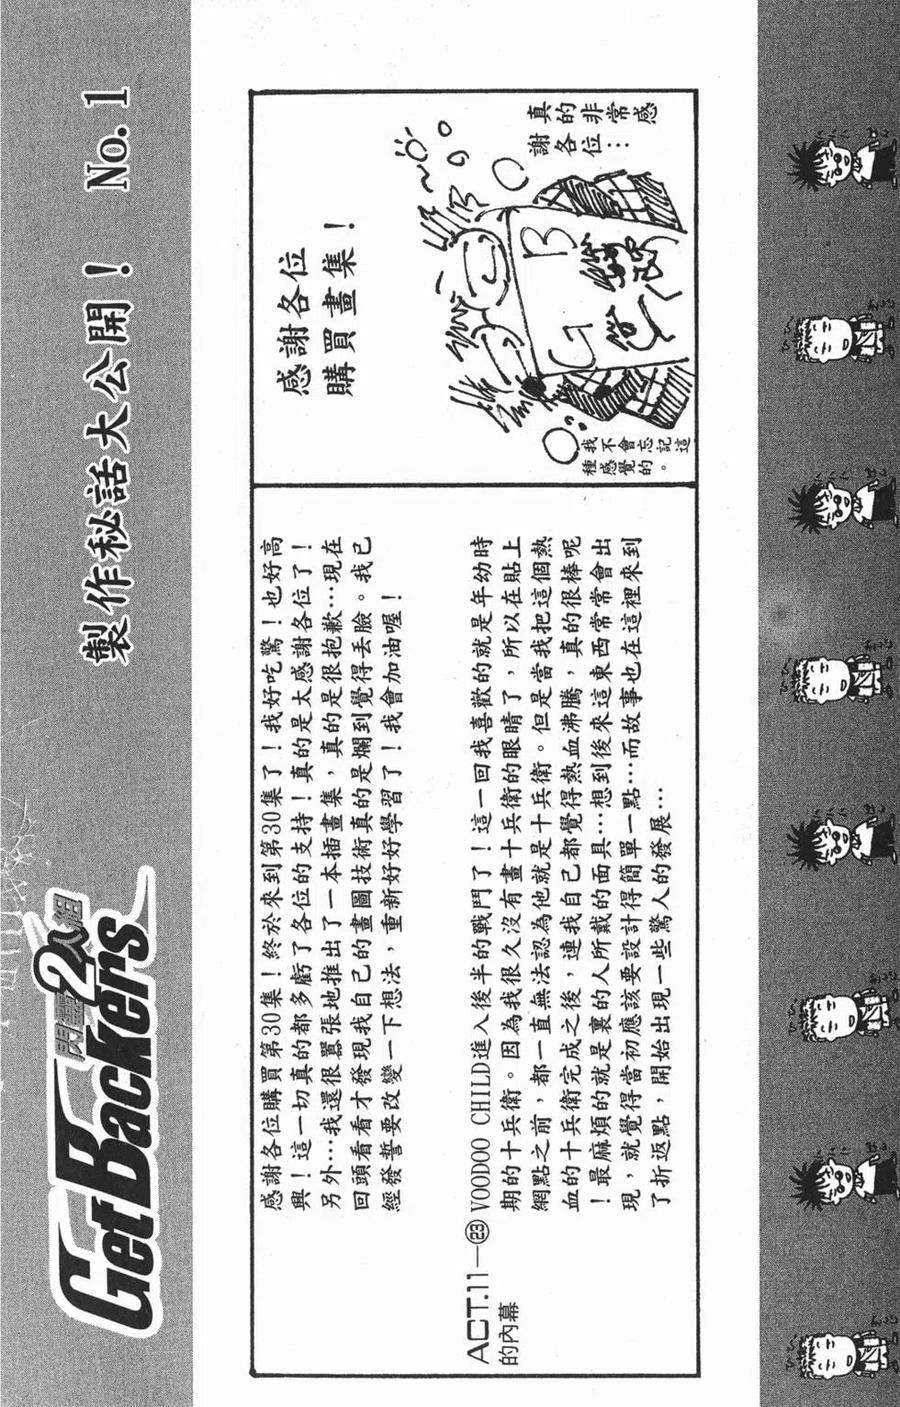 GetBackers
閃靈2人組
製作秘話大公開！ No. 1
感謝各位購買第30集！終於來到第30集了！我好吃驚！也好高
興！這一切真的都多虧了各位的支持！真的是太感謝各位了！
另外…我還很囂張地推出了一本插畫集，真的是很抱歉…現在
回頭看看才發現我自己的畫圖技術真的是爛到覺得丟臉。我已
經發誓要改變一下想法，重新好好學習了！我會加油喔！
感謝各位
購買畫集！
真的非常感
謝各位…
GB
我不會忘記這
種感覺的。
ACT.11—㉓
的內幕
VOODOO CHILD進入後半的戰鬥了！這一回我喜歡的就是年幼時
期的十兵衛。因為我很久沒有畫十兵衛的眼睛了，所以在貼上
網點之前，都一直無法認為他就是十兵衛。但是當我把這個熱
血的十兵衛完成之後，連我自己都覺得熱血沸騰，真的很棒呢
！最麻煩的就是裏的人所戴的面具…想到後來這東西常常會出
現，就覺得當初應該要設計得簡單一點…而故事也在這裡來到
了折返點，開始出現一些驚人的發展…